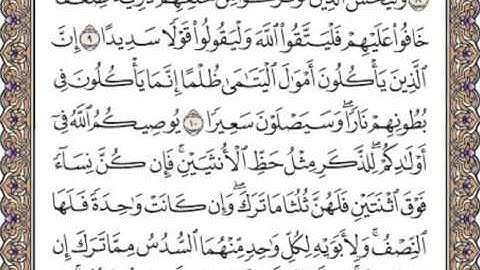 وَلْيَخْشَ ٱلَّذِينَ لَوْ تَرَكُوا۟ مِنْ خَلْفِهِمْ ذُرِّيَّةً ضِعَٰفًا
خَافُوا۟ عَلَيْهِمْ فَلْيَتَّقُوا۟ ٱللَّهَ وَلْيَقُولُوا۟ قَوْلًا سَدِيدًا ٩ إِنَّ
ٱلَّذِينَ يَأْكُلُونَ أَمْوَٰلَ ٱلْيَتَٰمَىٰ ظُلْمًا إِنَّمَا يَأْكُلُونَ فِى
بُطُونِهِمْ نَارًا ۖ وَسَيَصْلَوْنَ سَعِيرًا ١٠ يُوصِيكُمُ ٱللَّهُ فِىٓ
أَوْلَٰدِكُمْ ۖ لِلذَّكَرِ مِثْلُ حَظِّ ٱلْأُنثَيَيْنِ ۚ فَإِن كُنَّ نِسَآءً
فَوْقَ ٱثْنَتَيْنِ فَلَهُنَّ ثُلُثَا مَا تَرَكَ ۖ وَإِن كَانَتْ وَٰحِدَةً فَلَهَا
ٱلنِّصْفُ ۚ وَلِأَبَوَيْهِ لِكُلِّ وَٰحِدٍ مِّنْهُمَا ٱلسُّدُسُ مِمَّا تَرَكَ إِن